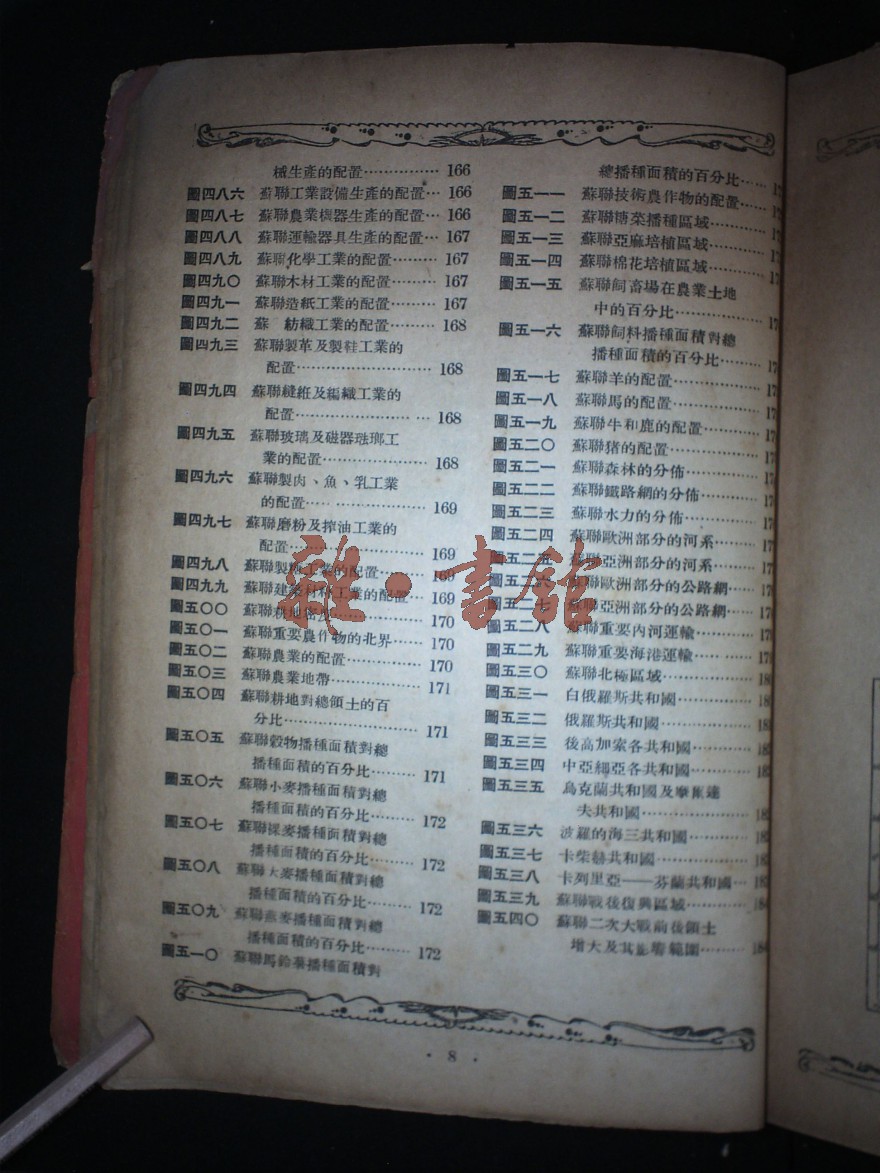 械生產的配置⋯⋯⋯⋯⋯ 166
圖四八六 蘇聯工業設備生產的配置⋯ 166
圖四八七 蘇聯農業機器生產的配置⋯ 166
圖四八八 蘇聯運輸器具生產的配置⋯ 167
圖四八九 蘇聯化學工業的配置⋯⋯⋯ 167
圖四九〇 蘇聯木材工業的配置⋯⋯⋯ 167
圖四九一 蘇聯造紙工業的配置⋯⋯⋯ 167
圖四九二 蘇 紡織工業的配置⋯⋯⋯ 168
圖四九三 蘇聯製革及製鞋工業的
配置⋯⋯⋯⋯⋯⋯⋯⋯⋯ 168
圖四九四 蘇聯縫絍及編織工業的
配置⋯⋯⋯⋯⋯⋯⋯ ⋯ 168
圖四九五 蘇聯玻璃及磁器琺瑯工
業的配置⋯⋯⋯⋯⋯⋯⋯ 168
圖四九六 蘇聯製肉、魚、乳工業
的配置⋯⋯ ⋯⋯⋯⋯⋯ 169
圖四九七 蘇聯磨粉及搾油工業的
配置⋯⋯⋯⋯⋯⋯⋯⋯⋯ 169
圖四九八 蘇聯製糖工業的配置⋯⋯⋯ 169
圖四九九 蘇聯建築材料工業的配置⋯ 169
圖五〇〇 蘇聯耕地密度⋯⋯⋯⋯⋯⋯ 170
圖五〇一 蘇聯重要農作物的北界⋯⋯ 170
圖五〇二 蘇聯農業的配置⋯⋯⋯⋯⋯ 170
圖五〇三 蘇聯農業地帶⋯⋯⋯⋯⋯⋯ 171
圖五〇四 蘇聯耕地對總領土的百
分比⋯⋯⋯⋯⋯⋯⋯⋯⋯ 171
圖五〇五 蘇聯穀物播種面積對總
播種面積的百分比⋯⋯⋯ 171
圖五〇六 蘇聯小麥播種面積對總
播種面積的百分比⋯⋯⋯ 172
圖五〇七 蘇聯裸麥播種面積對總
播種面積的百分比⋯⋯⋯ 172
圖五〇八 蘇聯大麥播種面積對總
播種面積的百分比⋯⋯⋯ 172
圖五〇九 蘇聯燕麥播種面積對總
播種面積的百分比⋯⋯⋯ 172
圖五一〇 蘇聯馬鈴薯播種面積對
總播種面積的百分比⋯⋯ 17
圖五一一 蘇聯技術農作物的配置⋯⋯
圖五一二 蘇聯糖菜播種區域⋯⋯⋯⋯
圖五一三 蘇聯亞麻培植區域⋯⋯⋯⋯
圖五一四 蘇聯棉花培植區域⋯⋯⋯⋯
圖五一五 蘇聯飼畜場在農業土地
中的百分比⋯⋯⋯⋯⋯⋯ 17
圖五一六 蘇聯飼料播種面積對總
播種面積的百分比⋯⋯⋯ 17
圖五一七 蘇聯羊的配置⋯⋯⋯⋯⋯⋯ 17
圖五一八 蘇聯馬的配置⋯⋯⋯⋯⋯⋯ 17
圖五一九 蘇聯牛和鹿的配置⋯⋯⋯⋯ 17
圖五二〇 蘇聯猪的配置⋯⋯⋯⋯⋯⋯ 17
圖五二一 蘇聯森林的分佈⋯⋯⋯⋯⋯ 17
圖五二二 蘇聯鐵路網的分佈⋯⋯⋯⋯ 17
圖五二三 蘇聯水力的分佈⋯⋯⋯⋯⋯ 17
圖五二四 蘇聯歐洲部分的河系⋯⋯⋯ 17
圖五二五 蘇聯亞洲部分的河系⋯⋯⋯ 17
圖五二六 蘇聯歐洲部分的公路網⋯⋯ 17
圖五二七 蘇聯亞洲部分的公路網⋯⋯ 17
圖五二八 蘇聯重要內河運輸⋯⋯⋯⋯ 17
圖五二九 蘇聯重要海港運輸⋯⋯⋯⋯ 17
圖五三〇 蘇聯北極區域⋯⋯⋯⋯⋯⋯ 18
圖五三一 白俄羅斯共和國⋯⋯⋯⋯⋯ 18
圖五三二 俄羅斯共和國⋯⋯⋯⋯⋯⋯ 18
圖五三三 後高加索各共和國⋯⋯⋯⋯ 18
圖五三四 中亞細亞各共和國⋯⋯⋯⋯ 18
圖五三五 烏克蘭共和國及摩爾達
夫共和國⋯⋯⋯⋯⋯⋯⋯ 18
圖五三六 波羅的海三共和國⋯⋯⋯⋯ 18
圖五三七 卡柴赫共和國⋯⋯⋯⋯⋯⋯ 18
圖五三八 卡列里亞——芬蘭共和國⋯ 18
圖五三九 蘇聯戰後復興區域⋯⋯⋯⋯ 184
圖五四〇 蘇聯二次大戰前後領土
增大及其影響範圍⋯⋯⋯ 184
· 8 ·
雜·書館